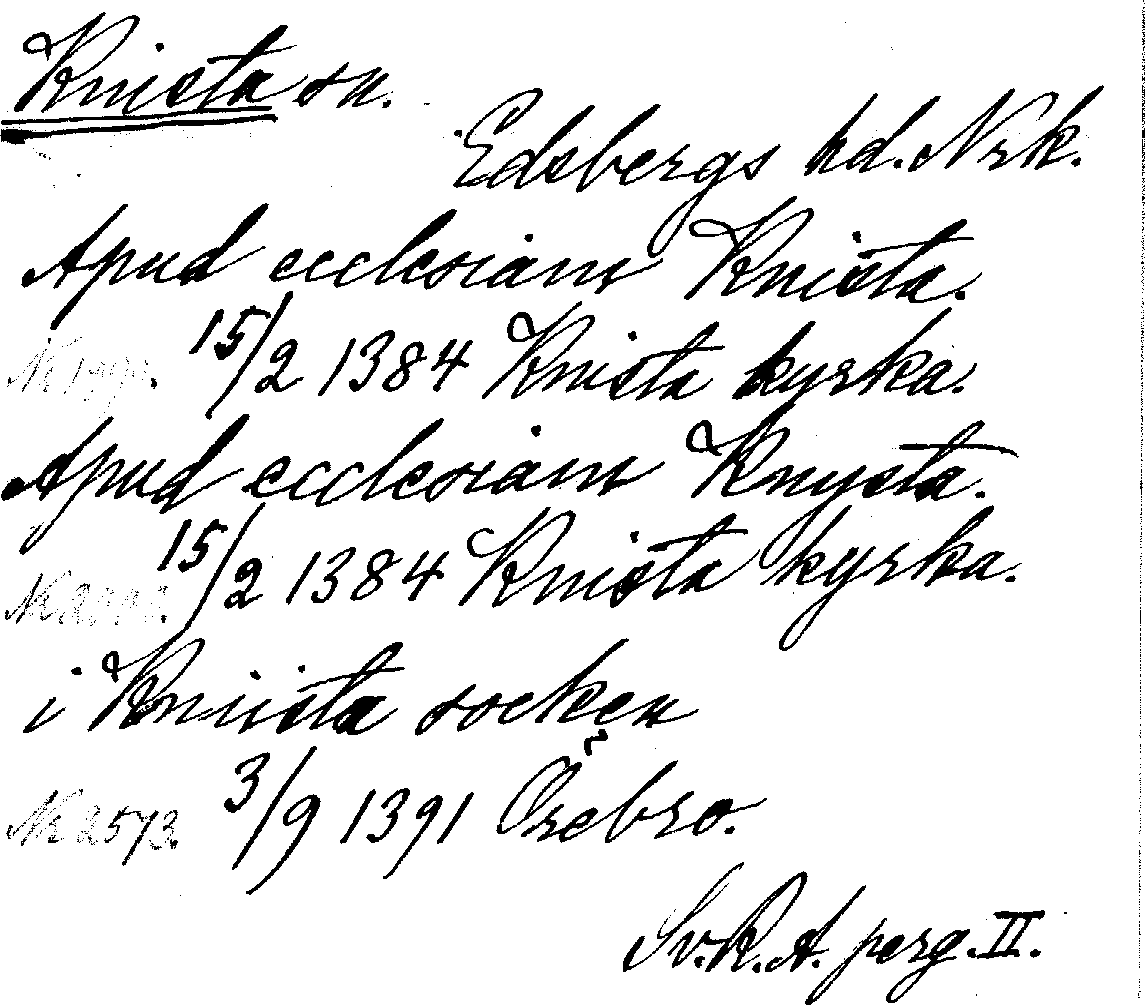 Knista sn.
Edsbergs hd. Nrk.
Apud ecclesiam Knista.
15/2 1384 Knista kyrka.
Apud ecclesiam Knysta.
15/2 1384 Knista kyrka.
i Kniista socken
Nr 2573. 3/9 1391 Örebro.
Sv. R. A. perg. II.